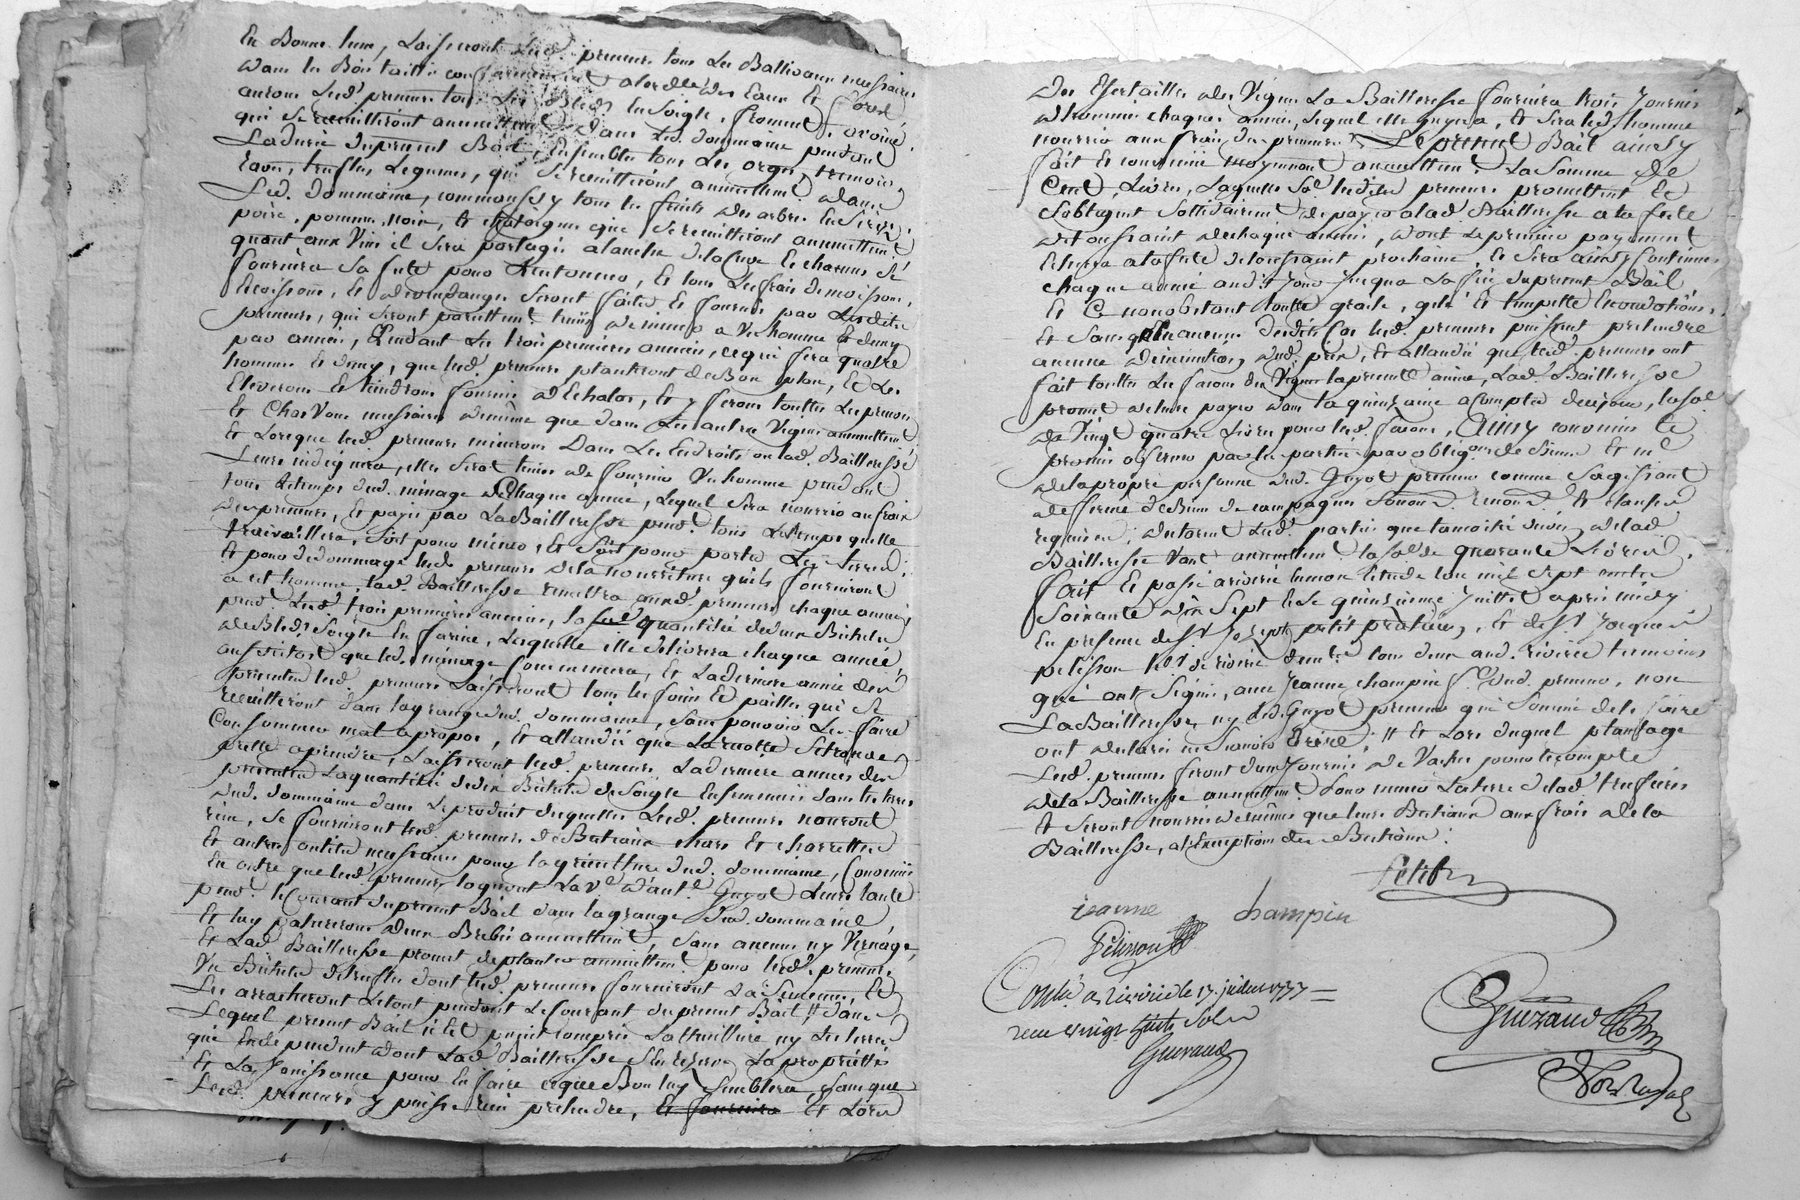 En Bonne lune, Laisseront Lesd. preneurs tous Les Ballivaux necessaires
dans les Bois taillis conformement a lordce des Eaux Et forest,
auront Lesd. preneurs tous Les Bleds En Soigle, froment, avoine,
qui Se receuilliront annuellement dans Led. dommaine pendant
La durée du present Bail, Ensembles tous Les orges, tremois,
raves, truffes Legumes, qui Se receuilliront annuellemt. dans
Led. dommaine, comm aussy tous les fruits des arbres En Serises,
poire, pomme, noix, Et chataignes qui Se receuilliront annuellemt.
quant aux Vins il Sera partagé a lanche de la Cuve Et chacuns Se
fournira Sa futte pour Lentonner, Et tous Les frais de moisson,
Et de vendanges Seront faites Et fournis par Lesdits
preneurs, qui Seront pareillemt. tenus de miner a Un homme Et demy
par année, Pendant Les trois premieres années, ce qui fera quatre
hommes Et demy, que lesd. preneurs planteront de Bon plan, Et Les
Eleveront Et tiendront fournis d'Echalas, Et y feront touttes Les
Et Lorsque lesd. preneurs mineront Dans Les Endroits ou lad. Bailleresse
Leurs indiquera, elle Sera tenue de fournir Un homme pendant
tout Le temps dud. minage de Chaque année, Lequel Sera nourrie aux frais
des preneurs, Et payé par La Bailleresse pendt. tous Le temps quelle
travaillera, Soit pour miner, Et Soit pour porter Les terres,
Et pour dedommager lesd. preneurs de la nourriture quils fourniront
a cet homme, lad. Bailleresse remettra auxd. preneurs chaque années
pendt. Lesd. trois premieres années, la quantité de deux Bichets
de Bled Soigle En farine, Laquelle elle delivrera chaque année,
aussitost que led. minage Commencera, Et La derniere année des
presentes lesd. preneurs Laisseront tous les foins Et pailles qui Se
receuilleront dans la grange dud. dommaine, Sans pouvoir Les faire
Consommer mal apropos, Et attandû que La recolte Se trouve
prette a prendre, Laisseront lesd. preneurs La derniere années des
presentes La quantité de dix Bichets de Soigle Ensemencés dans les terres
dud. dommaine dans Le produit desquelles Lesd. preneurs n'auront
rien, Se fourniront lesd. preneurs de Bestiaux chars Et charrettes
Et autres outils necessaires pour lagriculture dud. dommaine, Convenû
En outre que lesd. preneurs logeront La ve. d'ante. Guyot Leurs tante
pendt. le Courant du present Bail dans la grange dud. dommaine
Et luy patureront deux Brebis annuellement, Sans aucuns ny Vernage,
Et Lad. Bailleresse promet de planter annuellemt. pour lesd. preneurs
Un Bichet de truffes dont lesd. preneurs fourniront La Semence, Et
Les arracheront Le tout pendant Le Courant du present Bail, # dans
Lequel present Bail n'est point compris La tuilliere ny Les terres
qui En dependent dont Lad. Bailleresse S'En reserve La propriété
Et La Jouissance pour En faire ce que Bon luy Semblera, Sans que
Lesd. preneurs y puisse rien pretendre, Et Lors
Des Essertailles des Vignes La Bailleresse fournira trois Journés
d'hommes chaque année, Lequel elle payera, Et Sera led. homme
nourrie aux frais des preneurs. Le present Bail ainsy
fait Et convenû moyennant annuellemt. La Somme De
Cent Livres, Laquelle Som. lesdits preneurs promettent Et
S'obligent Sollidairemt. de payer a lad. Bailleresse a la fete
de toussaint de chaque année, dont Le premier payement
Echerra a la fete de toussaint prochaine, Et Sera ainsy Continuer
chaque année audit Jour Jusqua La fin du present Bail
Et Ce nonobstant touttes greslе, gelé Et tempette Inondations,
Et Sans quen aucuns desdits Cas lesd. preneurs puissent pretendre
aucune diminution dud. prix, Et attandû que lesd. preneurs ont
fait touttes Les facons des Vignes la presente année, Lad. Bailleresse
promet de leurs payer dans la quinzaine a Compter de ce jour, la Som.
de Vingt quatre Livres pour lesd. facons, Ainsy convenus Et
promis observer par les parties par obligaon. de Biens Et
de la propre personne dud. Guyot preneur comme S'agissant
de ferme de Biens de campagnes Soumon. renon. Et clauses
requises, declarent Lesd. parties que la moitié du vin de lad.
Bailleresse Vaut annuellemt. la Som. de quarante Livres,
fait Et passé a riverie En mon Etude L'an mil Sept cents
Soixante dix Sept Et Le quinzieme Juillet apres midy
En presence de Sr. Joseph petit praticien, Et de Sr. Jacques
pelisson de riverie demts. tous deux aud. riverie temoins
qui ont Signé, avec Jeanne champin fe. dud. preneur, non
La Bailleresse, ny led. Guyot preneur qui Sommé de le faire
ont declaré ne Savoir Ecrire, # Et Lors duquel plantage
Lesd. preneurs feront deux Journés de Vaches pour le compte
de la Bailleresse annuellemt. pour miner La terre de lad. truffieres
Et Seront nourris de mêmes que leurs Bestiaux aux frais de la
Bailleresse, a l'Exemption des Bestiaux.
Petit
jeanne champin
Pelisson
Conlé a Riverie le 17. juillet 1777
recu vingt huit Sols
Guiraud
Guiraud